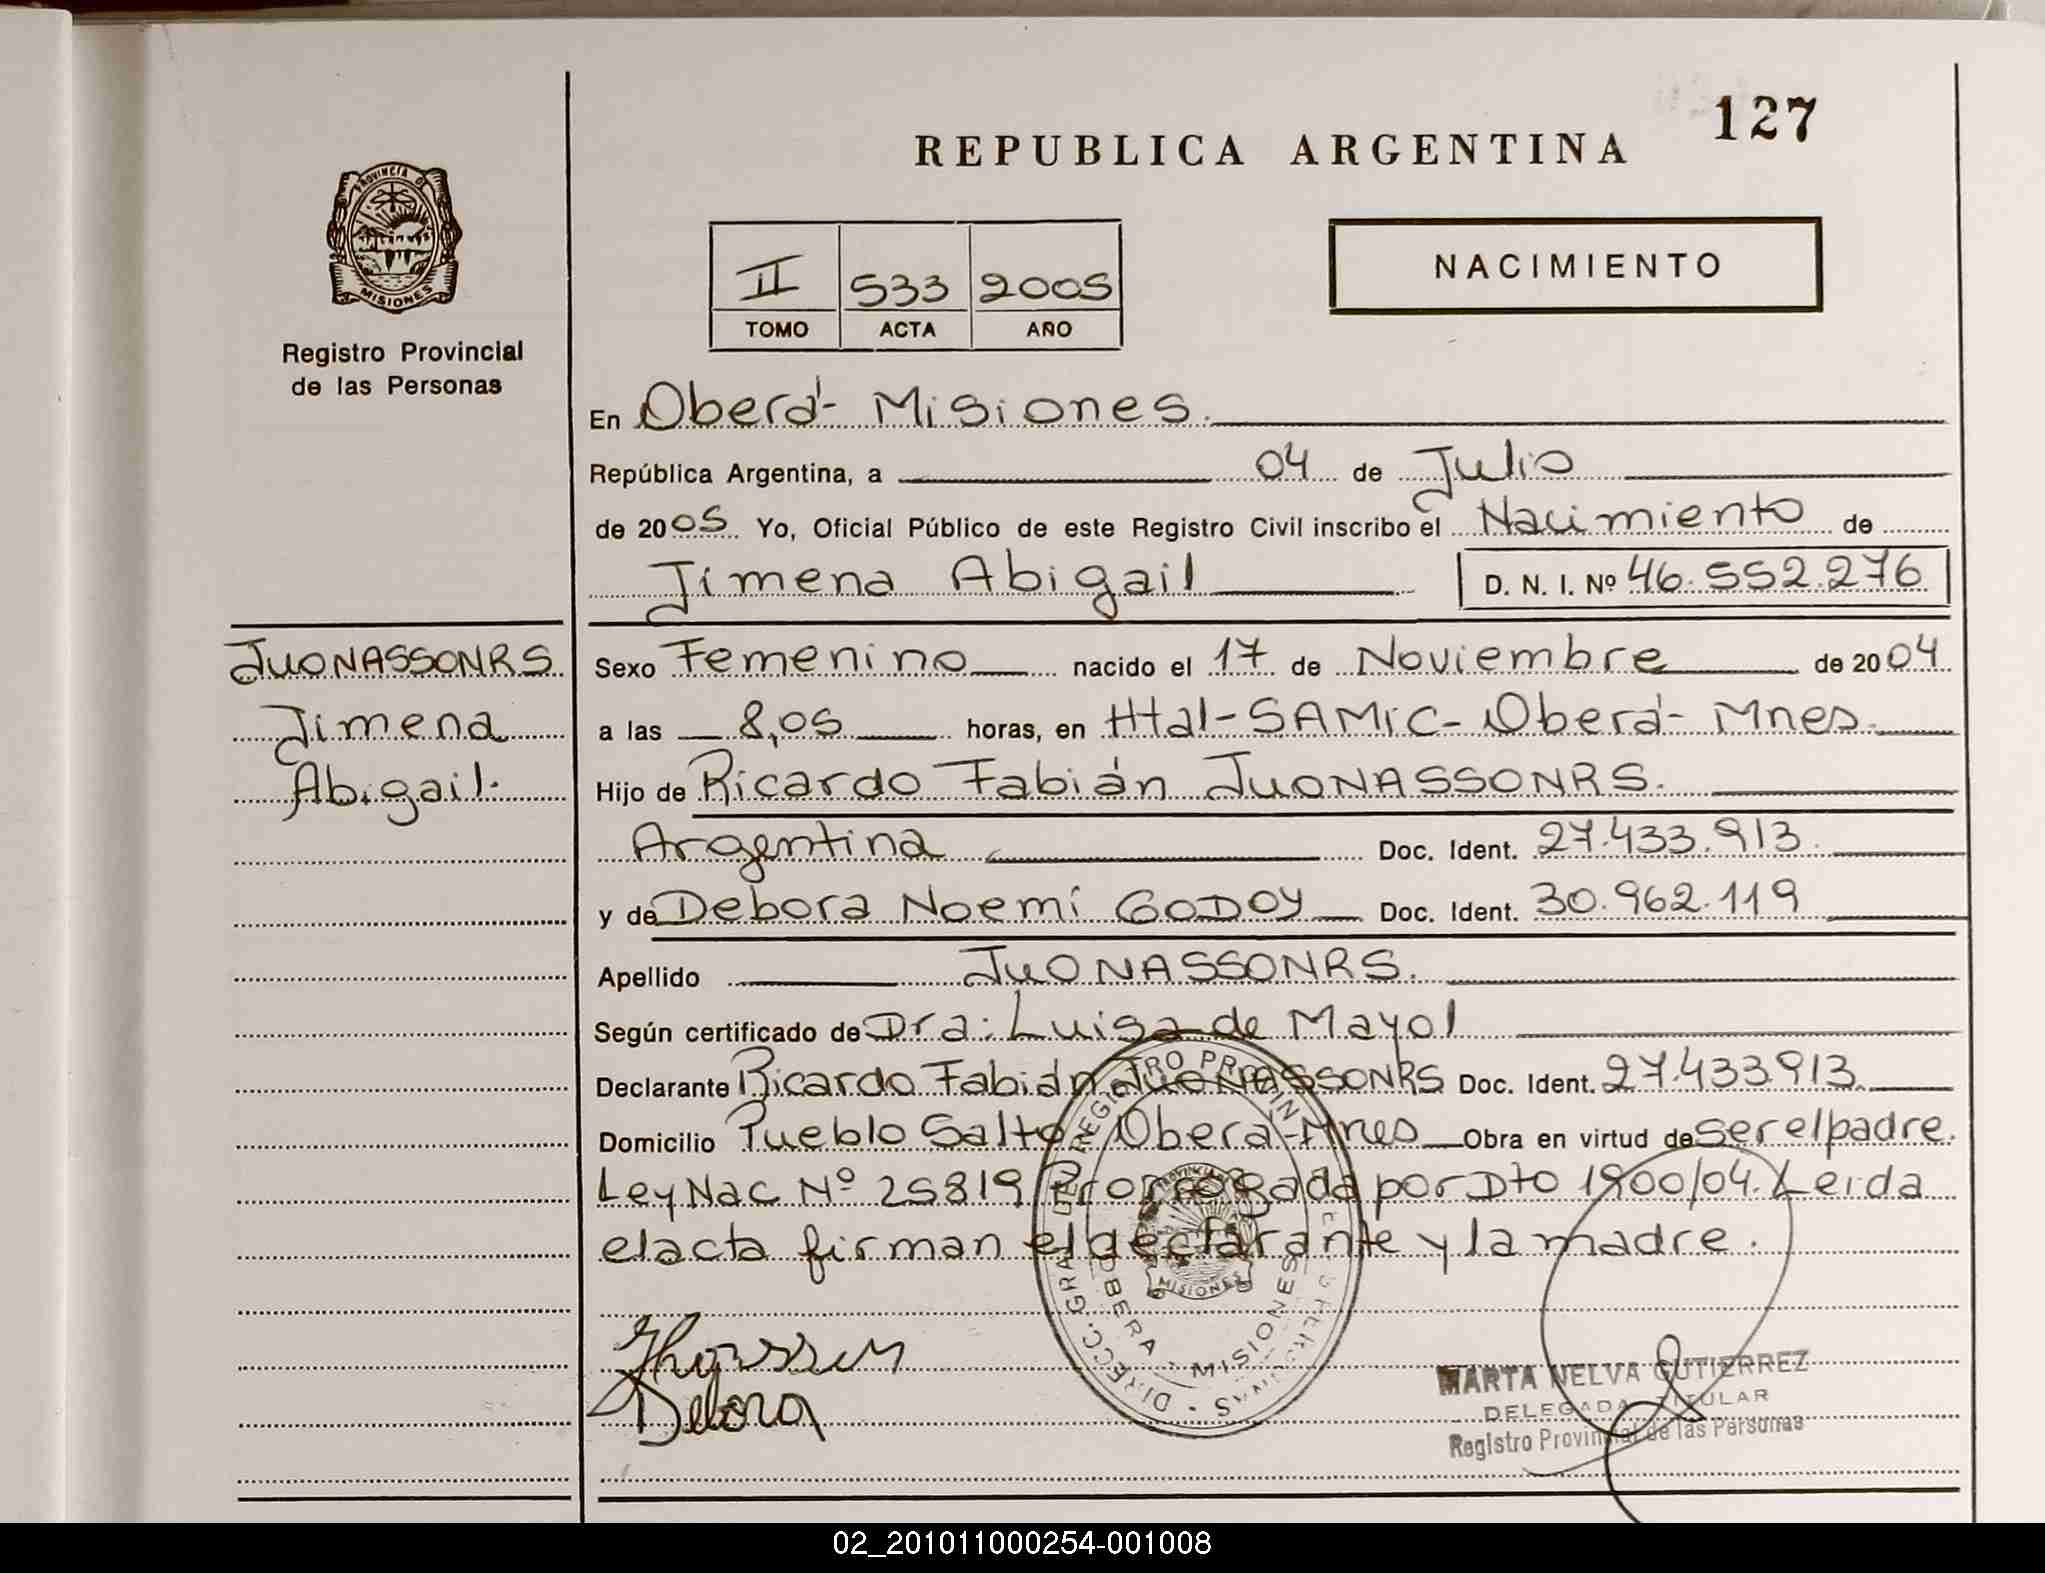 127
REPUBLICA ARGENTINA
PROVINCIA DE
MISIONES
Registro Provincial
de las Personas
NACIMIENTO
II 533 2005
TOMO ACTA AÑO
En Oberá- Misiones.
República Argentina, a 04 de Julio
de 2005 Yo, Oficial Público de este Registro Civil inscribo el Nacimiento de
Jimena Abigail D. N. I. Nº 46.552.276
JUONASSONRS.
Jimena
Abigail.
Sexo Femenino nacido el 17 de Noviembre de 2004
a las 8,05 horas, en Htal-SAMIC-Oberá- Mnes.
Hijo de Ricardo Fabián JUONASSONRS.
Argentina Doc. Ident. 27.433.913.
y de Debora Noemí GODOY Doc. Ident. 30.962.119
Apellido JUONASSONRS.
Según certificado de Dra: Luisa de Mayol
Declarante Ricardo Fabián JUONASSONRS Doc. Ident. 27.433913.
Domicilio Pueblo Salto Oberá-Mnes Obra en virtud de ser el padre.
Ley Nac Nº 25819 Prorrogada por Dto 1900/04. Leida
el acta firman el declarante y la madre.
DIRECC. GRAL DEL REGISTRO PROVIN
OBERA - MISIONES
MISIONES
Debora
MARTA NELVA GUTIERREZ
DELEGADA TITULAR
Registro Provincial de las Personas
02_201011000254-001008